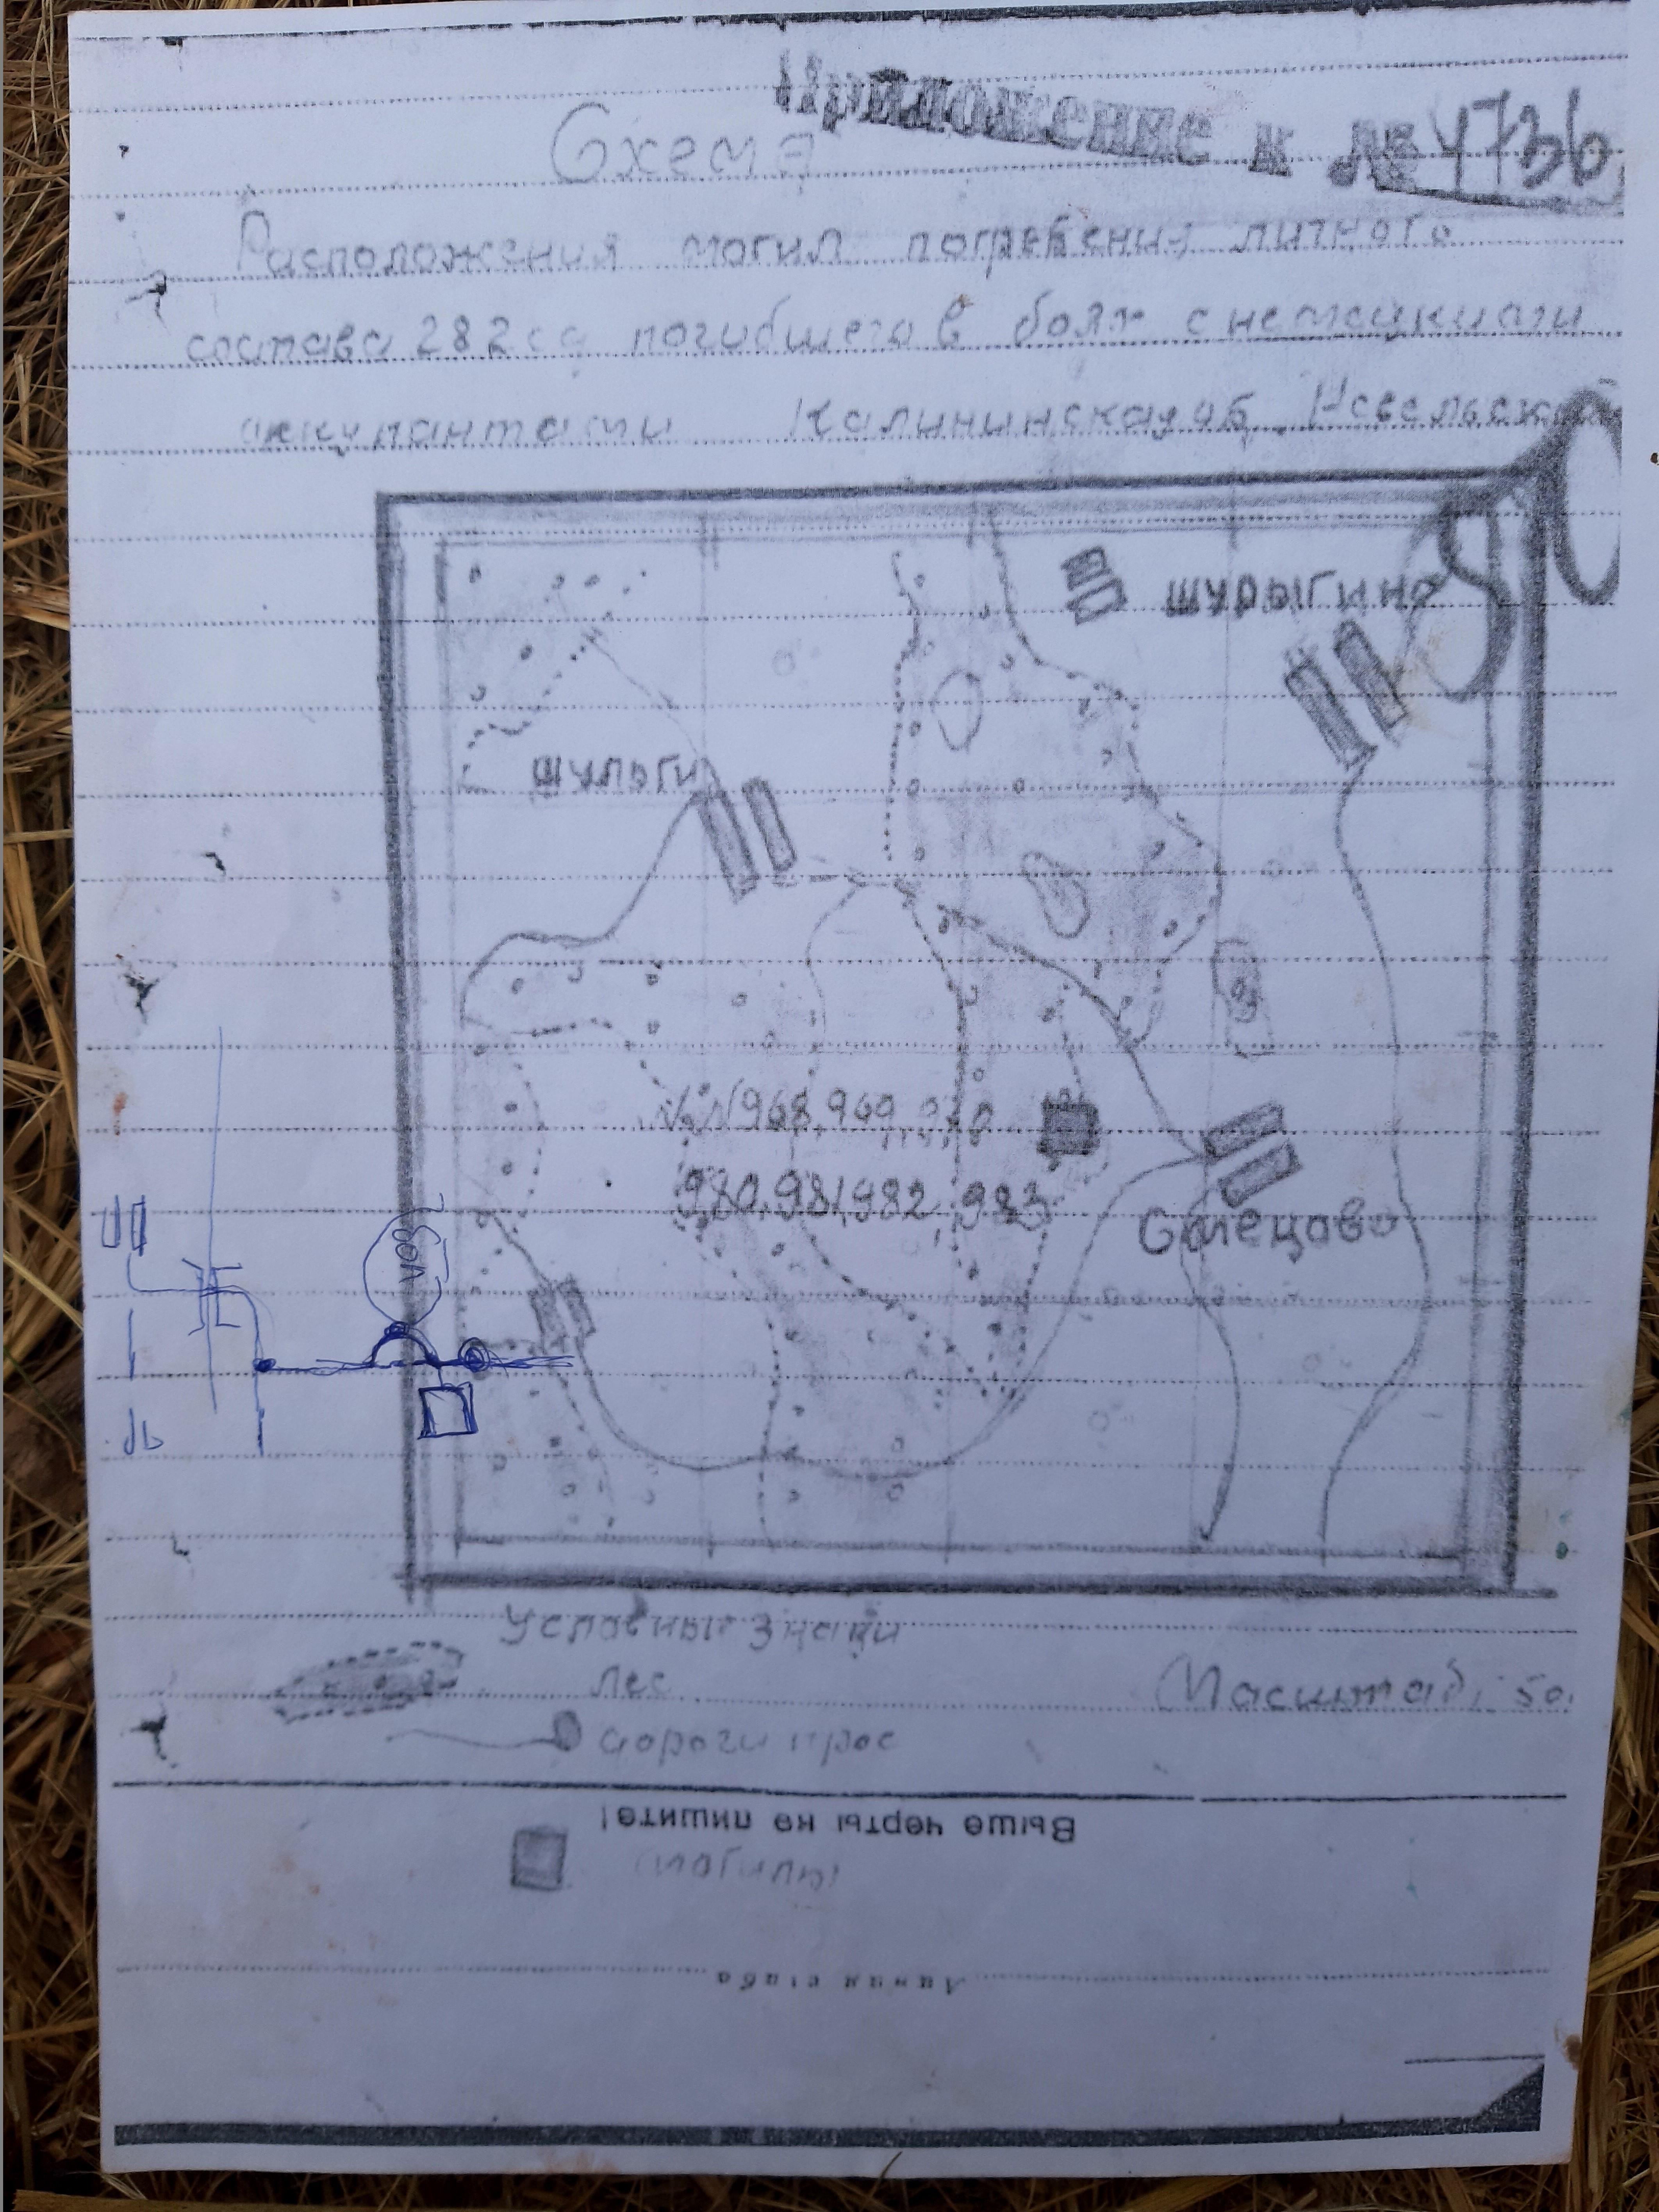 Приложение к № 4736
Схема
Расположения могил погребения личного
состава 282 сд погибшего в боях с немецкими
аккупантами Калининская об. Невельский
Шурыгино
Шульги
NN 968, 969, 970
980, 981, 982, 983
Стецово
бол
Условные знаки
лес
Масштаб 50.
дороги прос
Выше черты не пишите!
могилы
Линия сгиба